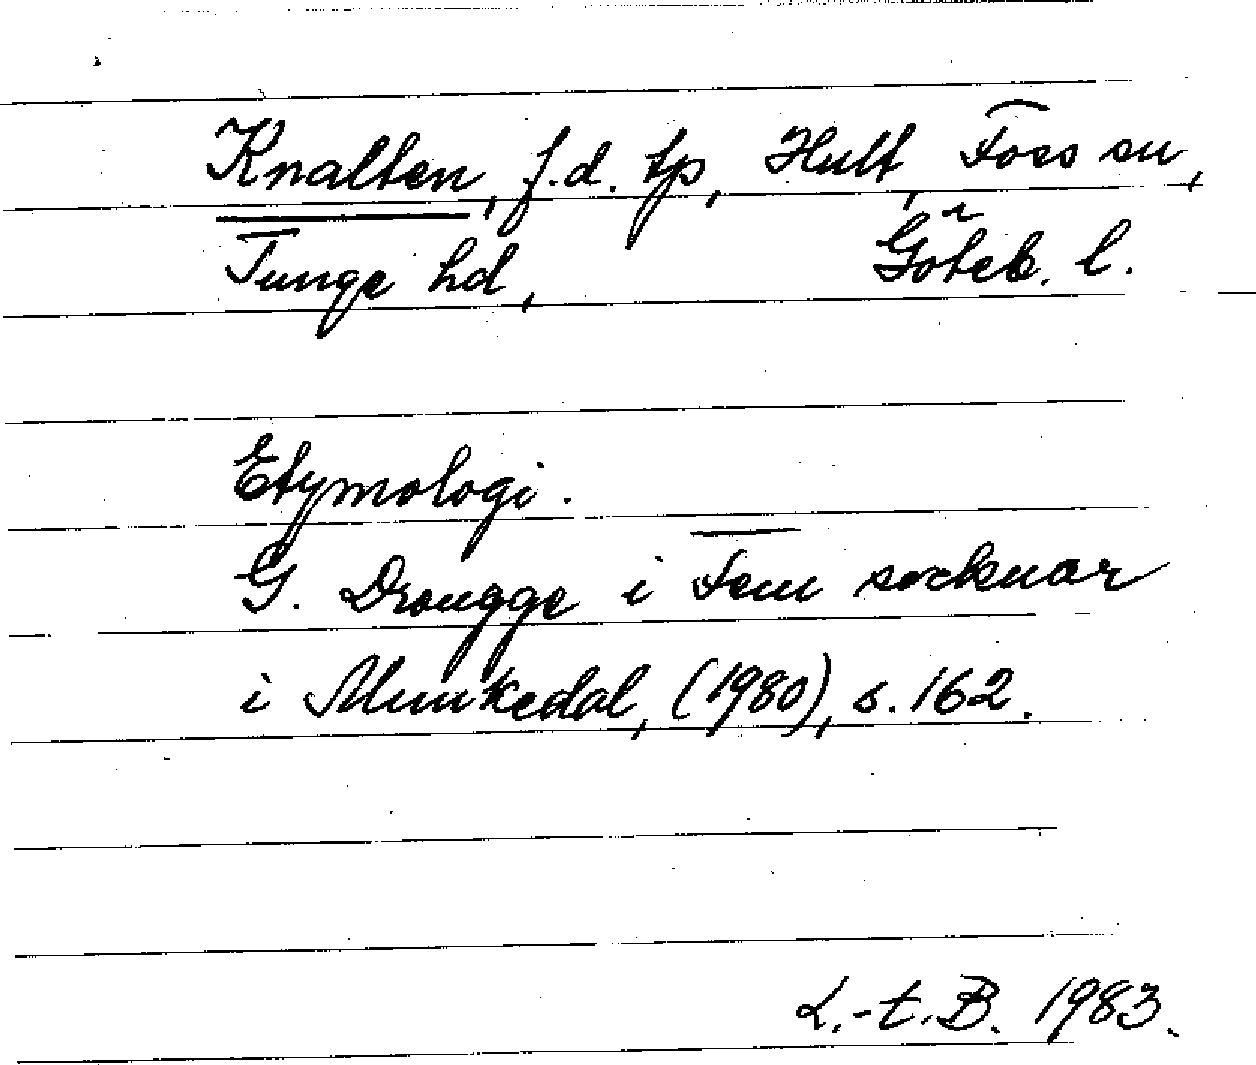 Knalten, f.d. tp, Hult, Foss sn,
Tunge hd, Göteb. l.
Etymologi.
G. Drougge i Fem socknar
i Munkedal, (1980), s. 162.
L.-t. B. 1983.